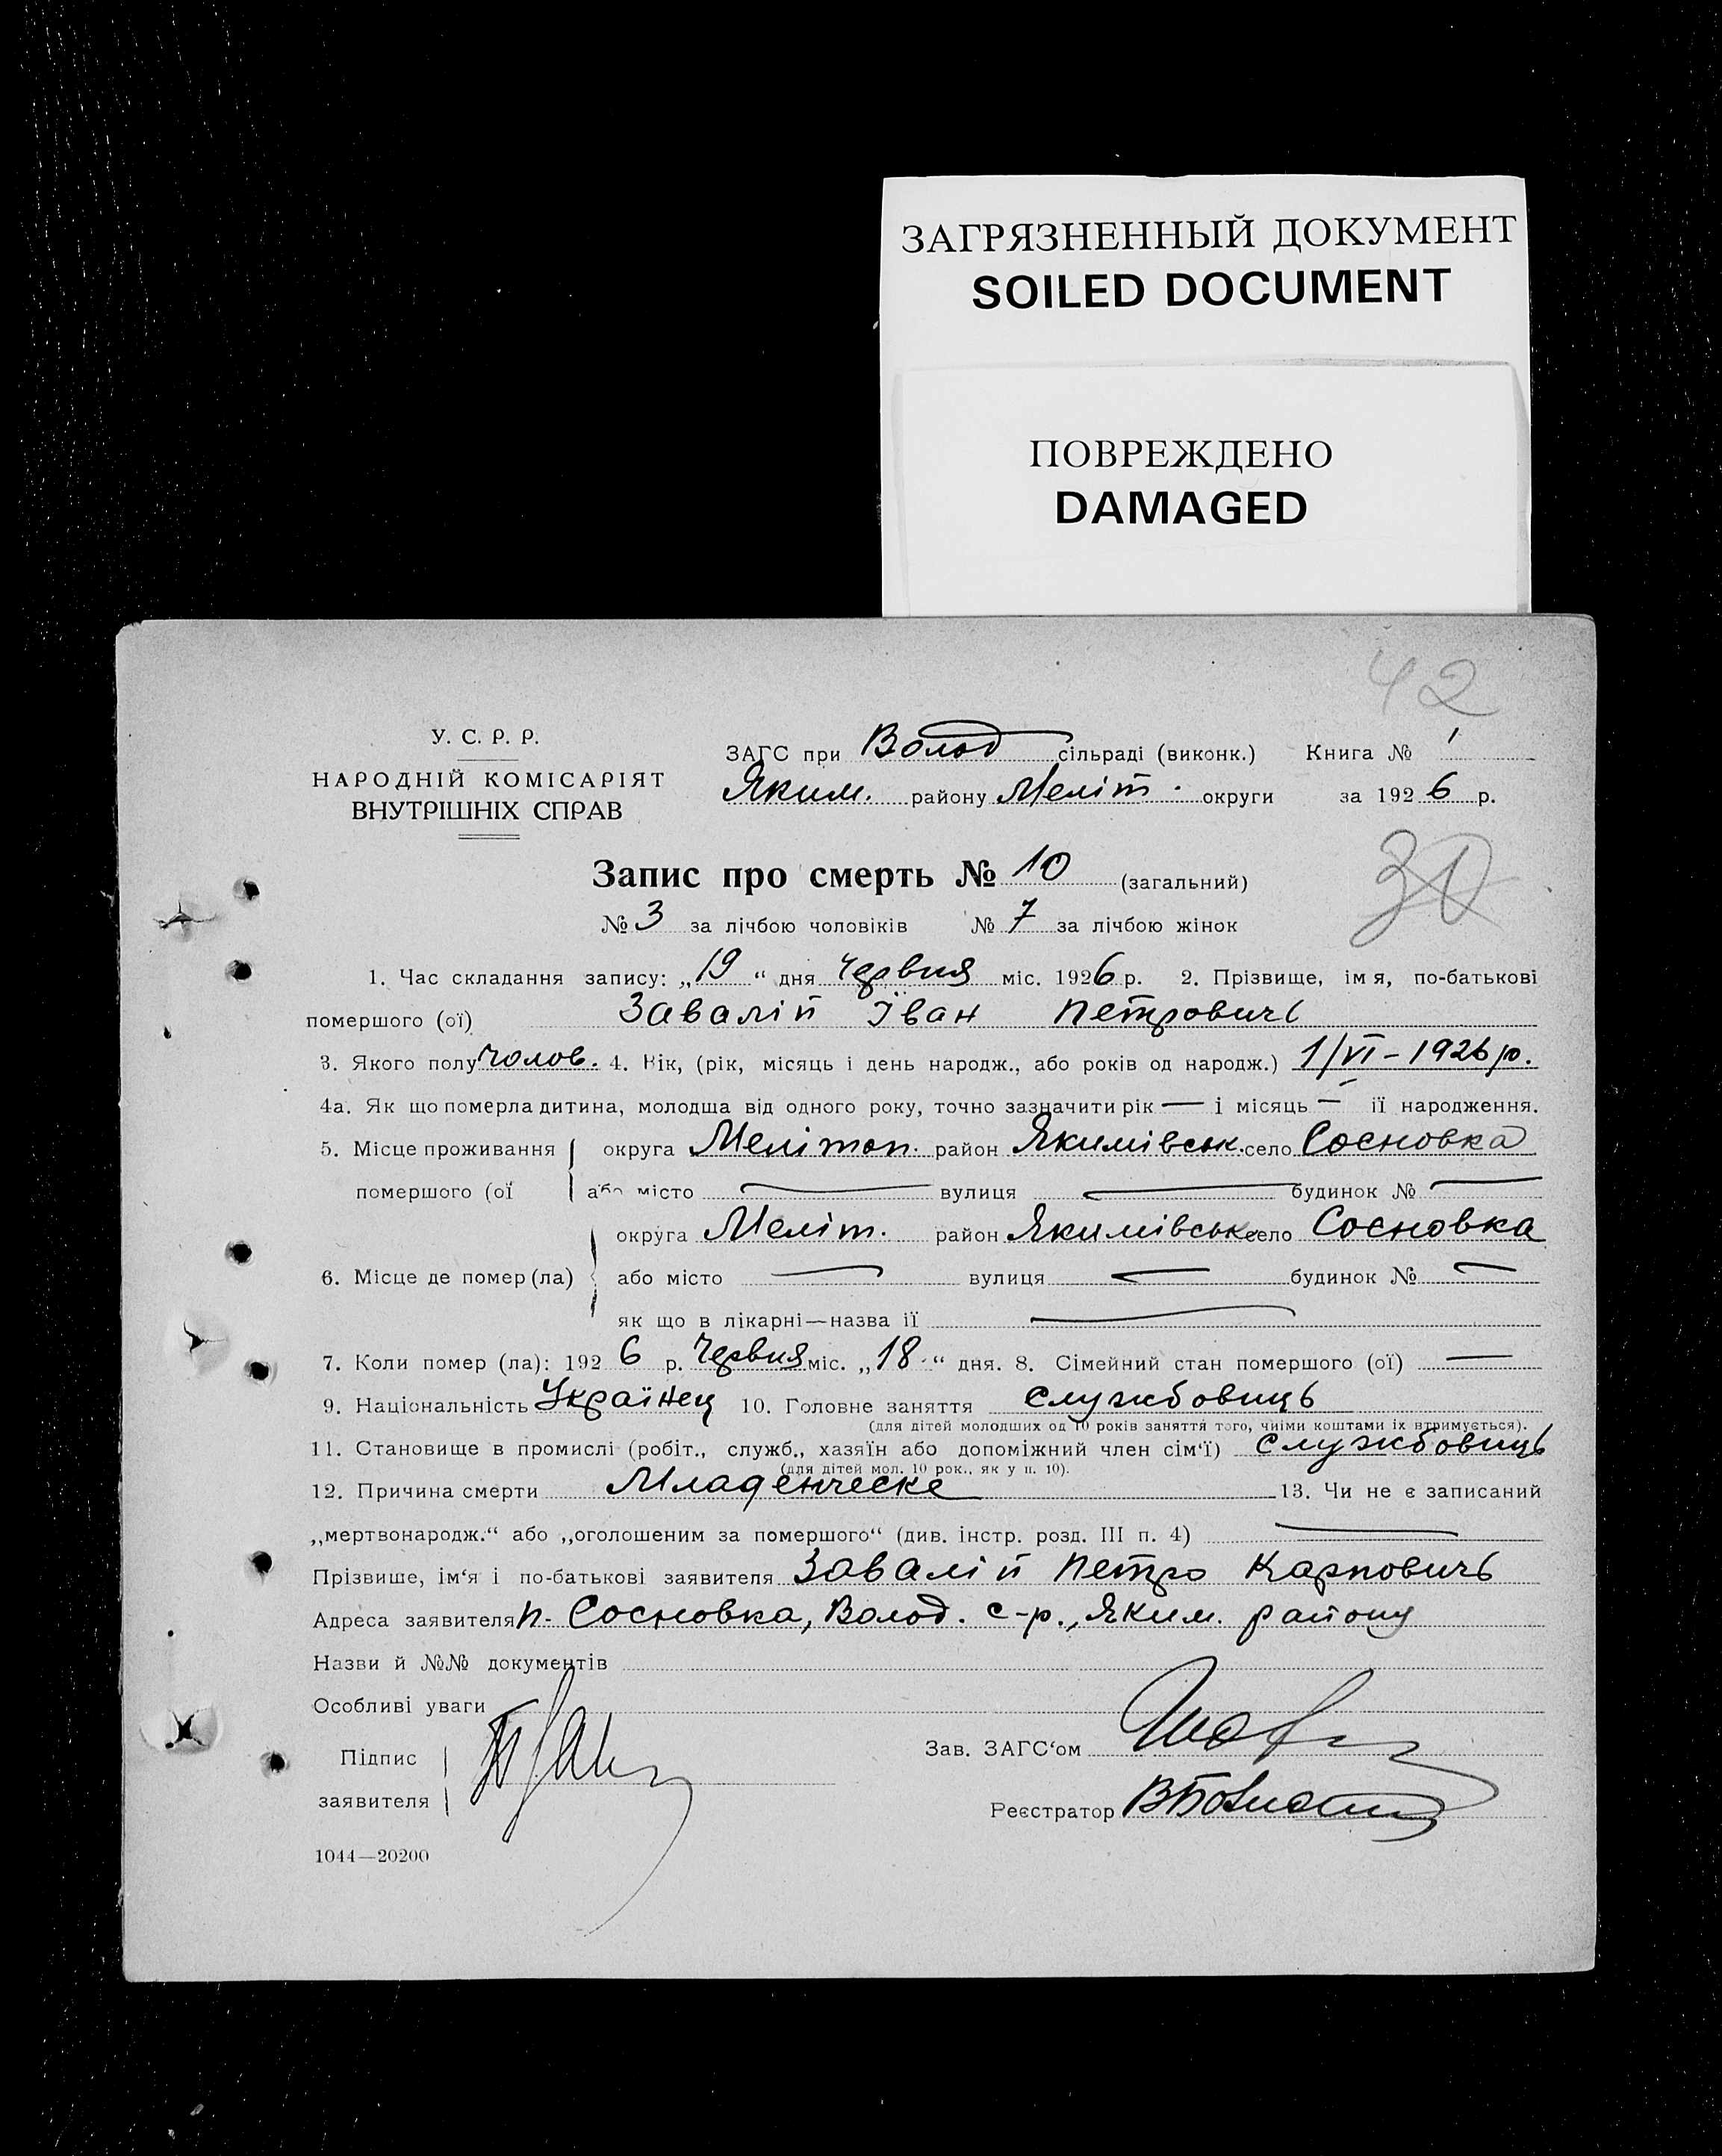 ЗАГРЯЗНЕННЫЙ ДОКУМЕНТ
SOILED DOCUMENT
ПОВРЕЖДЕНО
DAMAGED
42
У. С. Р. Р.
НАРОДНІЙ КОМІСАРІЯТ
ВНУТРІШНІХ СПРАВ
ЗАГС при Волод сільраді (виконк.) Книга № 1
Яким. району Меліт. округи за 1926 р.
Запис про смерть № 10 (загальний)
30
№ 3 за лічбою чоловіків № 7 за лічбою жінок
1. Час складання запису: „19“ дня Червня міс. 1926 р. 2. Прізвище, імя, по-батькові
помершого (ої) Завалій Іван Петровичь
3. Якого полу чолов. 4. Вік, (рік, місяць і день народж., або років од народж.) 1/VI – 1926 р.
4а. Як що померла дитина, молодша від одного року, точно зазначити рік — і місяць — ії народження.
5. Місце проживання округа Мелітоп. район Якимівськ. село Сосновка
помершого (ої або місто — вулиця — будинок № —
округа Меліт. район Якимівськ. село Сосновка
6. Місце де помер (ла) або місто — вулиця — будинок № —
як що в лікарні—назва ії —
7. Коли помер (ла): 1926 р. Червня міс. „18“ дня. 8. Сімейний стан помершого (ої) —
9. Національність Українец 10. Головне заняття службовиць
(для дітей молодших од 10 років заняття того, чиїми коштами їх втримується).
11. Становище в промислі (робіт., служб., хазяїн або допоміжний член сім‘ї) Службовиць
(для дітей мол. 10 рок., як у п. 10).
12. Причина смерти Младенческе 13. Чи не є записаний
„мертвонародж.“ або „оголошеним за помершого“ (див. інстр. розд. III п. 4) —
Прізвише, ім‘я і по-батькові заявителя Завалій Петро Карповичь
Адреса заявителя п. Сосновка, Волод. с-р., Яким. району
Назви й №№ документів
Особливі уваги
Підпис
заявителя
Зав. ЗАГС‘ом
Реєстратор
1044—20200